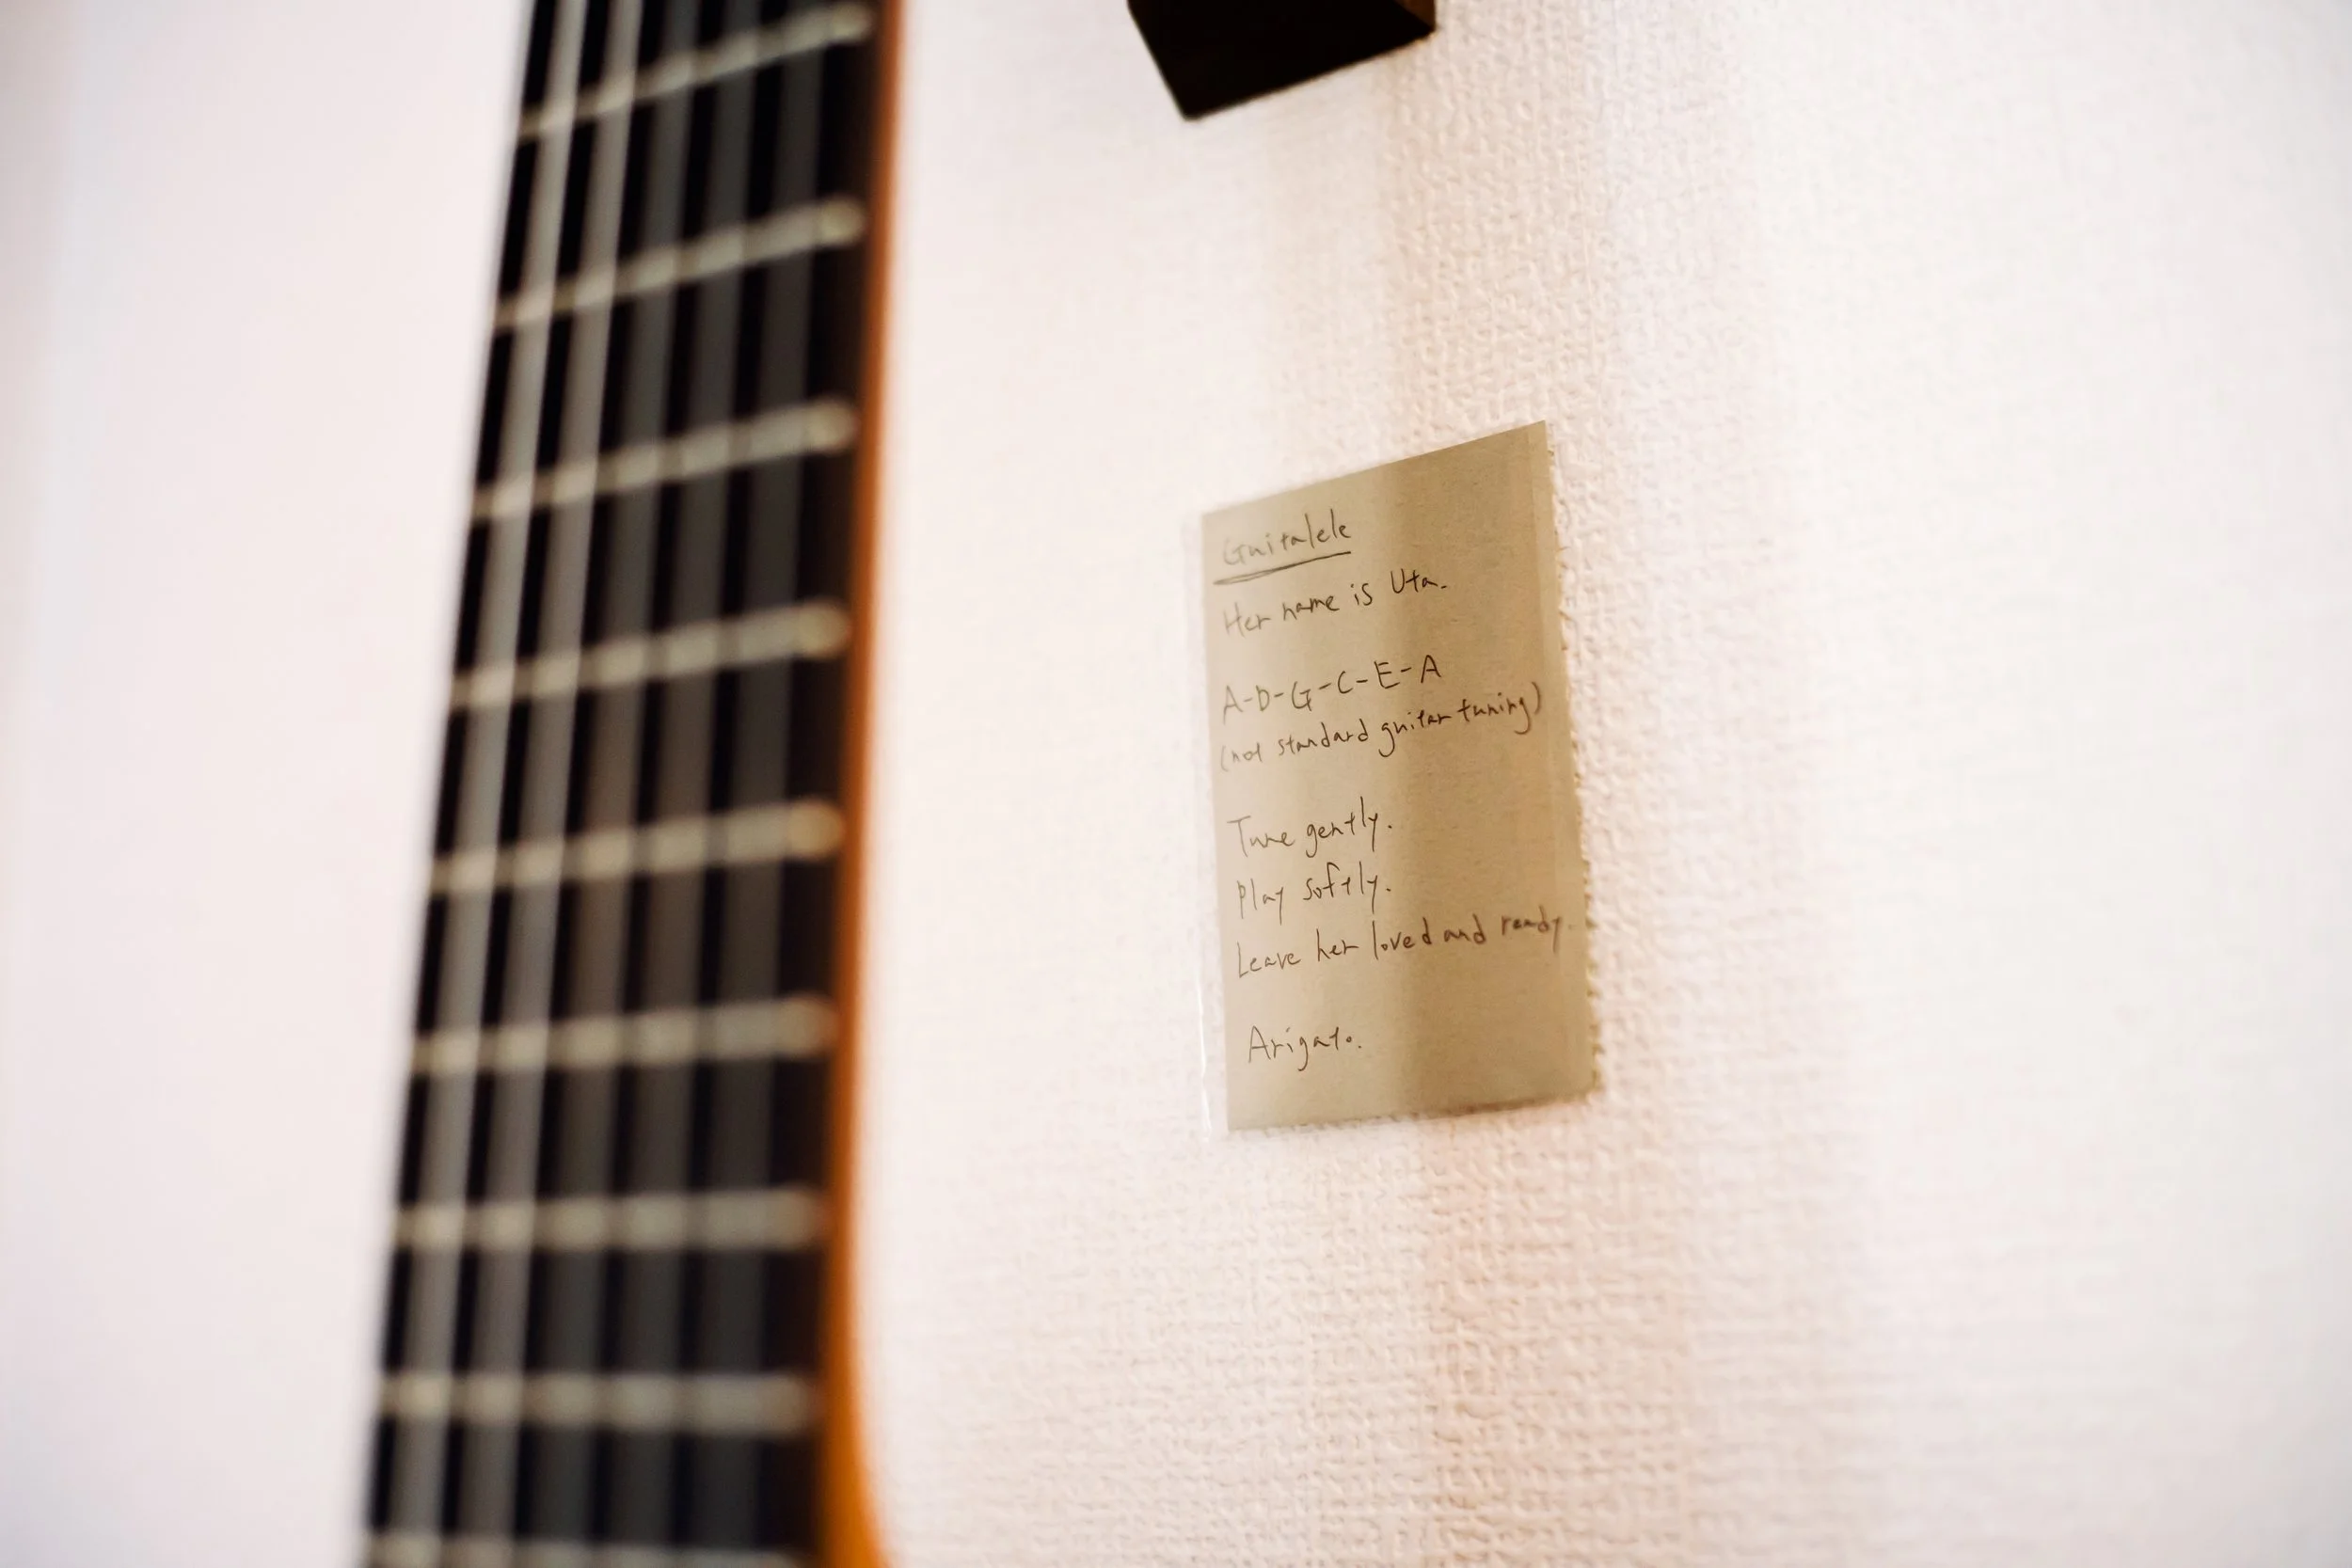 Guitalele
Her name is Uta.
A-D-G-C-E-A
(not standard guitar tuning)
Tune gently.
Play softly.
Leave her loved and ready.
Arigato.